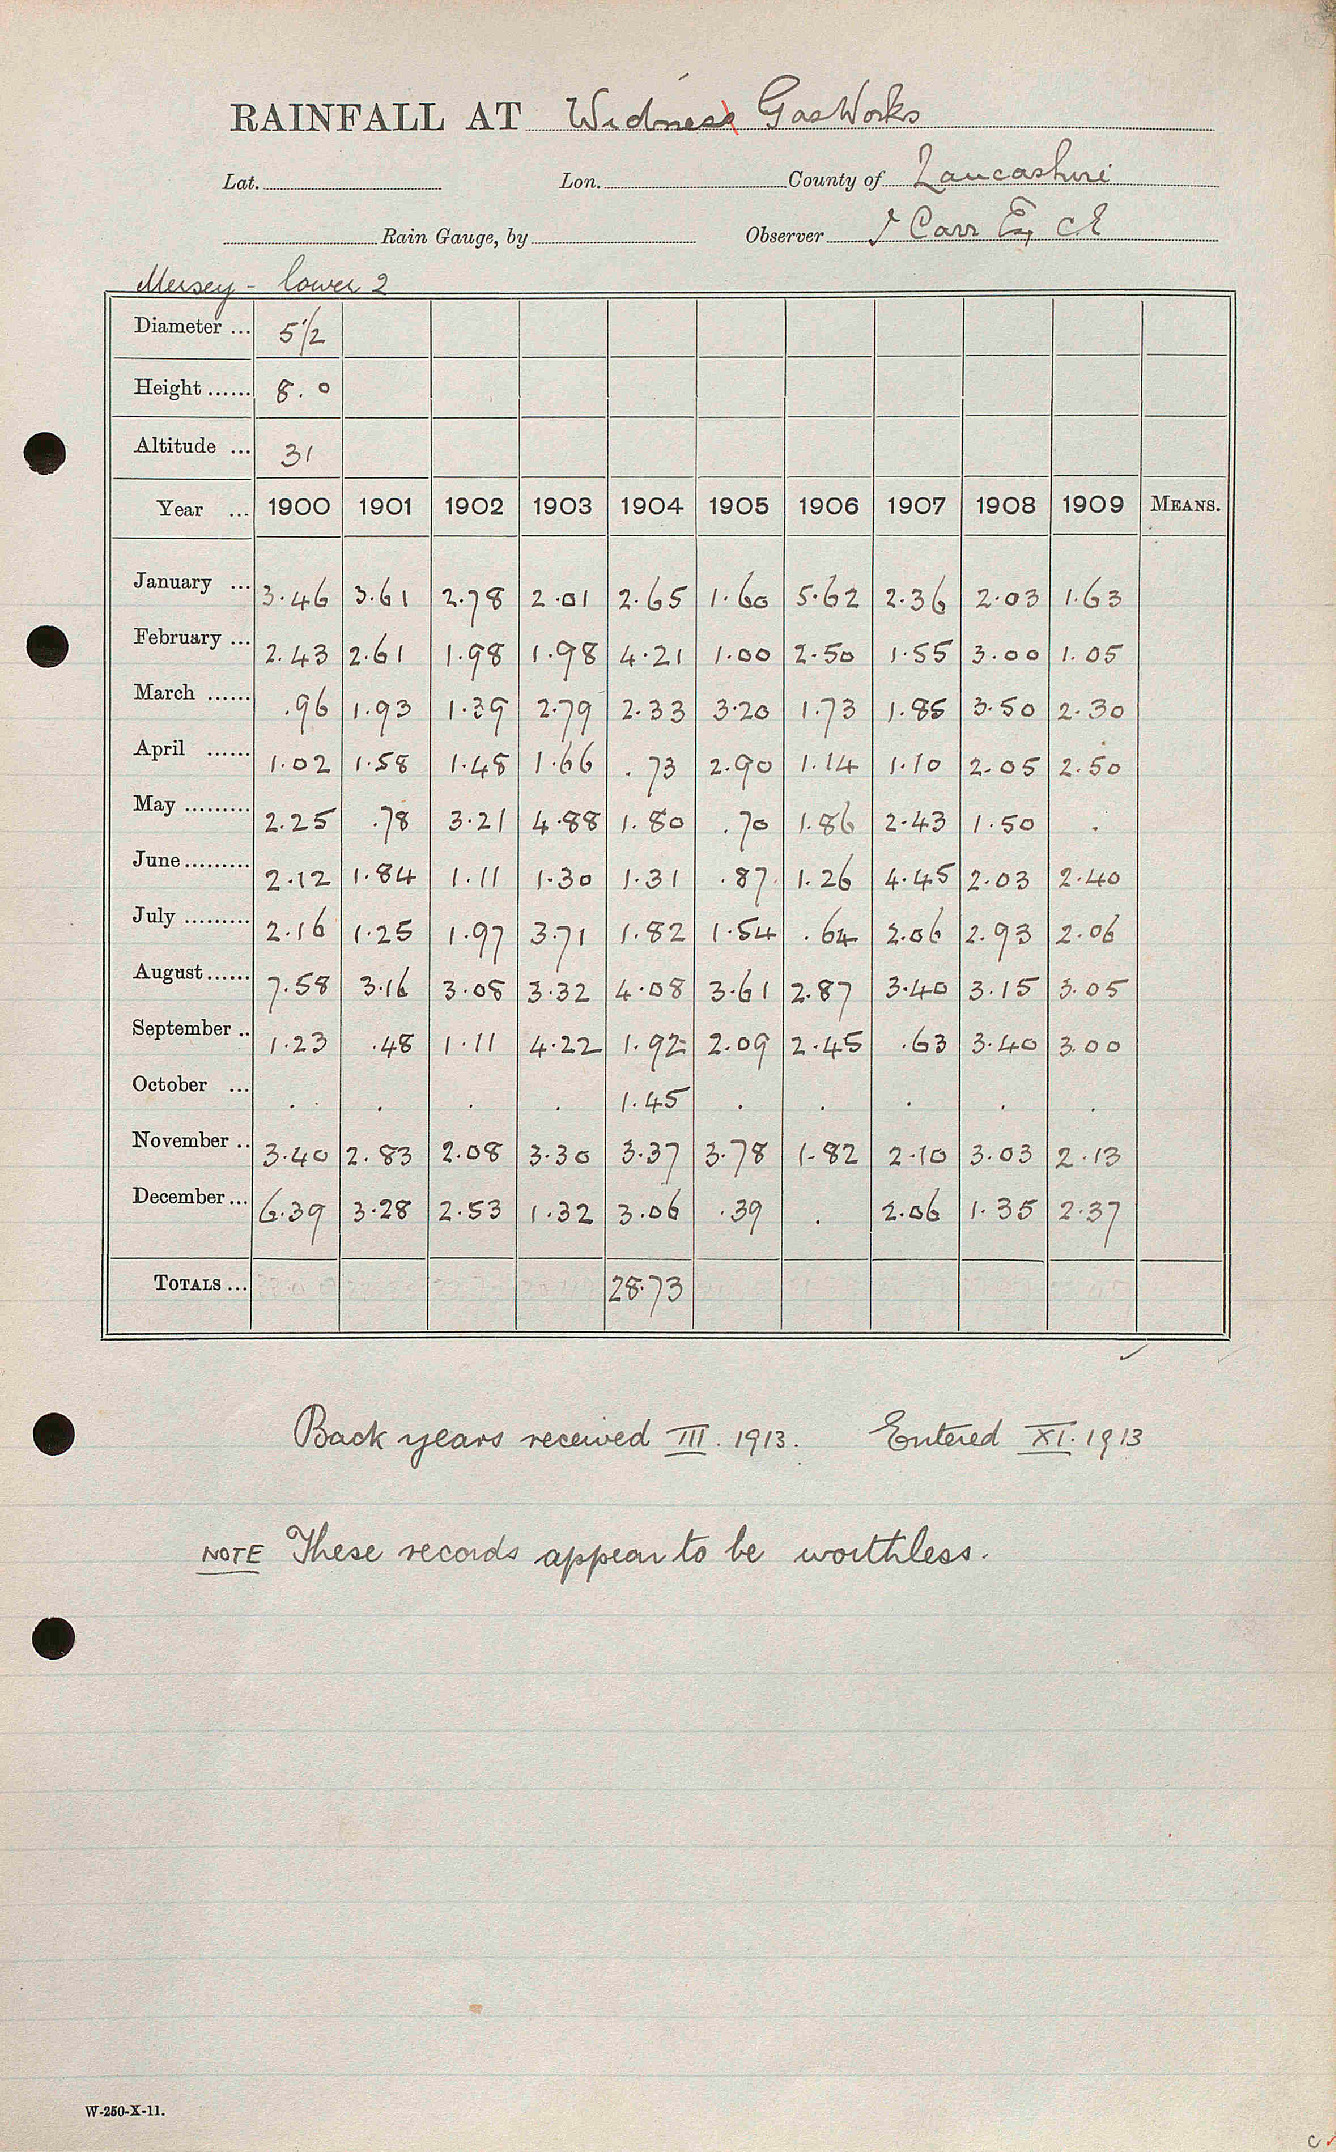 RAINFALL AT Widness GasWorks
Lat. Lon. County of Lancashire
Rain Gauge, by Observer J Carr Esq CE
Mersey - lower 2
Diameter ... 5 1/2
Height ...... 8. 0
Altitude ... 31
Year ... 1900 1901 1902 1903 1904 1905 1906 1907 1908 1909 MEANS.
January ... 3.46 3.61 2.78 2.01 2.65 1.60 5.62 2.36 2.03 1.63
February ... 2.43 2.61 1.98 1.98 4.21 1.00 2.50 1.55 3.00 1.05
March ...... .96 1.93 1.39 2.79 2.33 3.20 1.73 1.85 3.50 2.30
April ...... 1.02 1.58 1.48 1.66 .73 2.90 1.14 1.10 2.05 2.50
May ......... 2.25 .78 3.21 4.88 1.80 .70 1.86 2.43 1.50 .
June ......... 2.12 1.84 1.11 1.30 1.31 .87 1.26 4.45 2.03 2.40
July ......... 2.16 1.25 1.97 3.71 1.82 1.54 .64 2.06 2.93 2.06
August ...... 7.58 3.16 3.08 3.32 4.08 3.61 2.87 3.40 3.15 3.05
September .. 1.23 .48 1.11 4.22 1.92 2.09 2.45 .63 3.40 3.00
October ... . . . . 1.45 . . . . .
November .. 3.40 2.83 2.08 3.30 3.37 3.78 1.82 2.10 3.03 2.13
December ... 6.39 3.28 2.53 1.32 3.06 .39 . 2.06 1.35 2.37
TOTALS ... 28.73
Back years received III. 1913. Entered XI. 1913
NOTE These records appear to be worthless.
W-250-X-11.